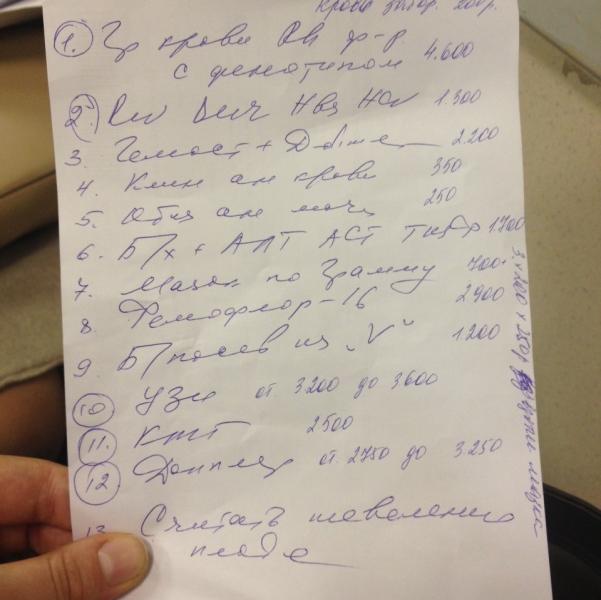 Кровь забор. 200р.
1. Гр крови Rh ф-р
с фенотипом 4.600
2. RW ВИЧ HBs HCV 1.300
3. Гемост + D-dimer 2.200
4. Клин ан крови 350
5. Общ ан мочи 250
6. Б/х + АЛТ АСТ 1.700
7. Мазок по Грамму 700
8. Фемофлор-16 2900
9. Б/посев из "V" 1200
10 УЗИ от 3200 до 3600
11. КТГ 2500
12 Доплер от 2750 до 3.250
13 Считать шевеления
плода